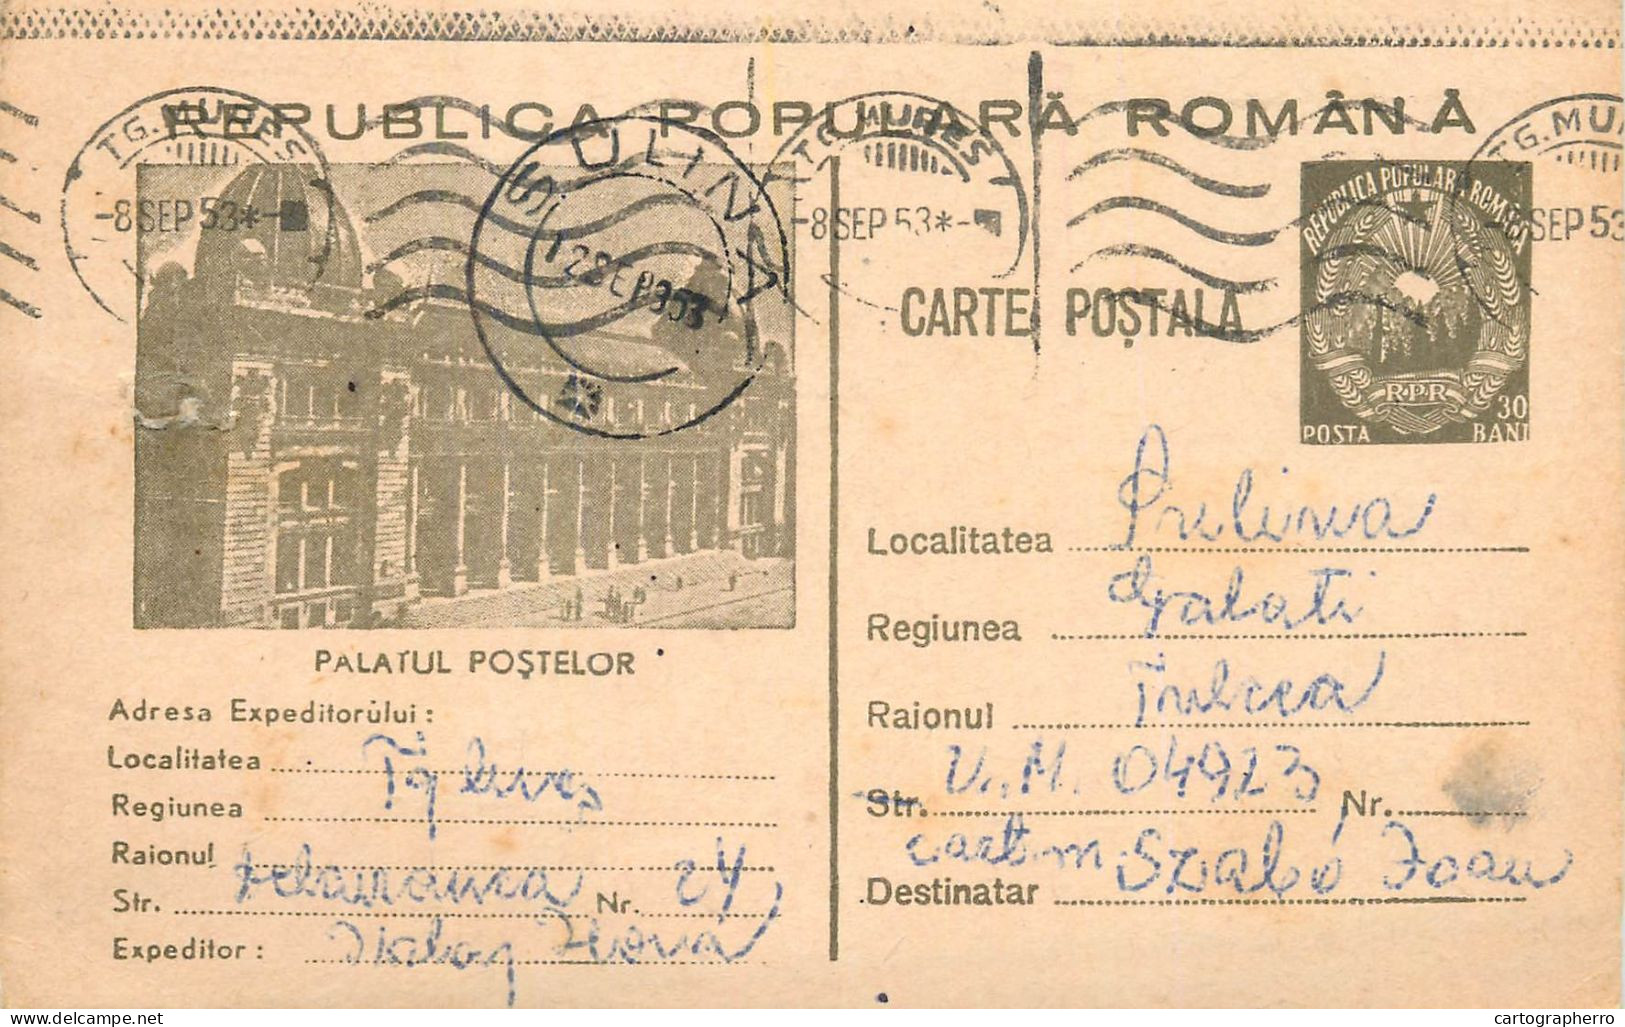 REPUBLICA POPULARĂ ROMÂNĂ
TG. MUREȘ
-8 SEP 53 *-
SULINA
12 SEP 953
TG. MUREȘ
-8 SEP 53 *-
TG. MUR
8 SEP 53
CARTE POȘTALĂ
REPUBLICA POPULARA ROMÂNĂ
R.P.R.
POSTA 30 BANI
PALATUL POȘTELOR
Adresa Expeditorului:
Localitatea
Regiunea
Raionul
Str. Nr. 24
Expeditor: Ilona
Localitatea Sulina
Regiunea Galati
Raionul Tulcea
Str. U.M. 04923 Nr.
cart.
Destinatar Szabó Ioan
delcampe.net
cartographerro